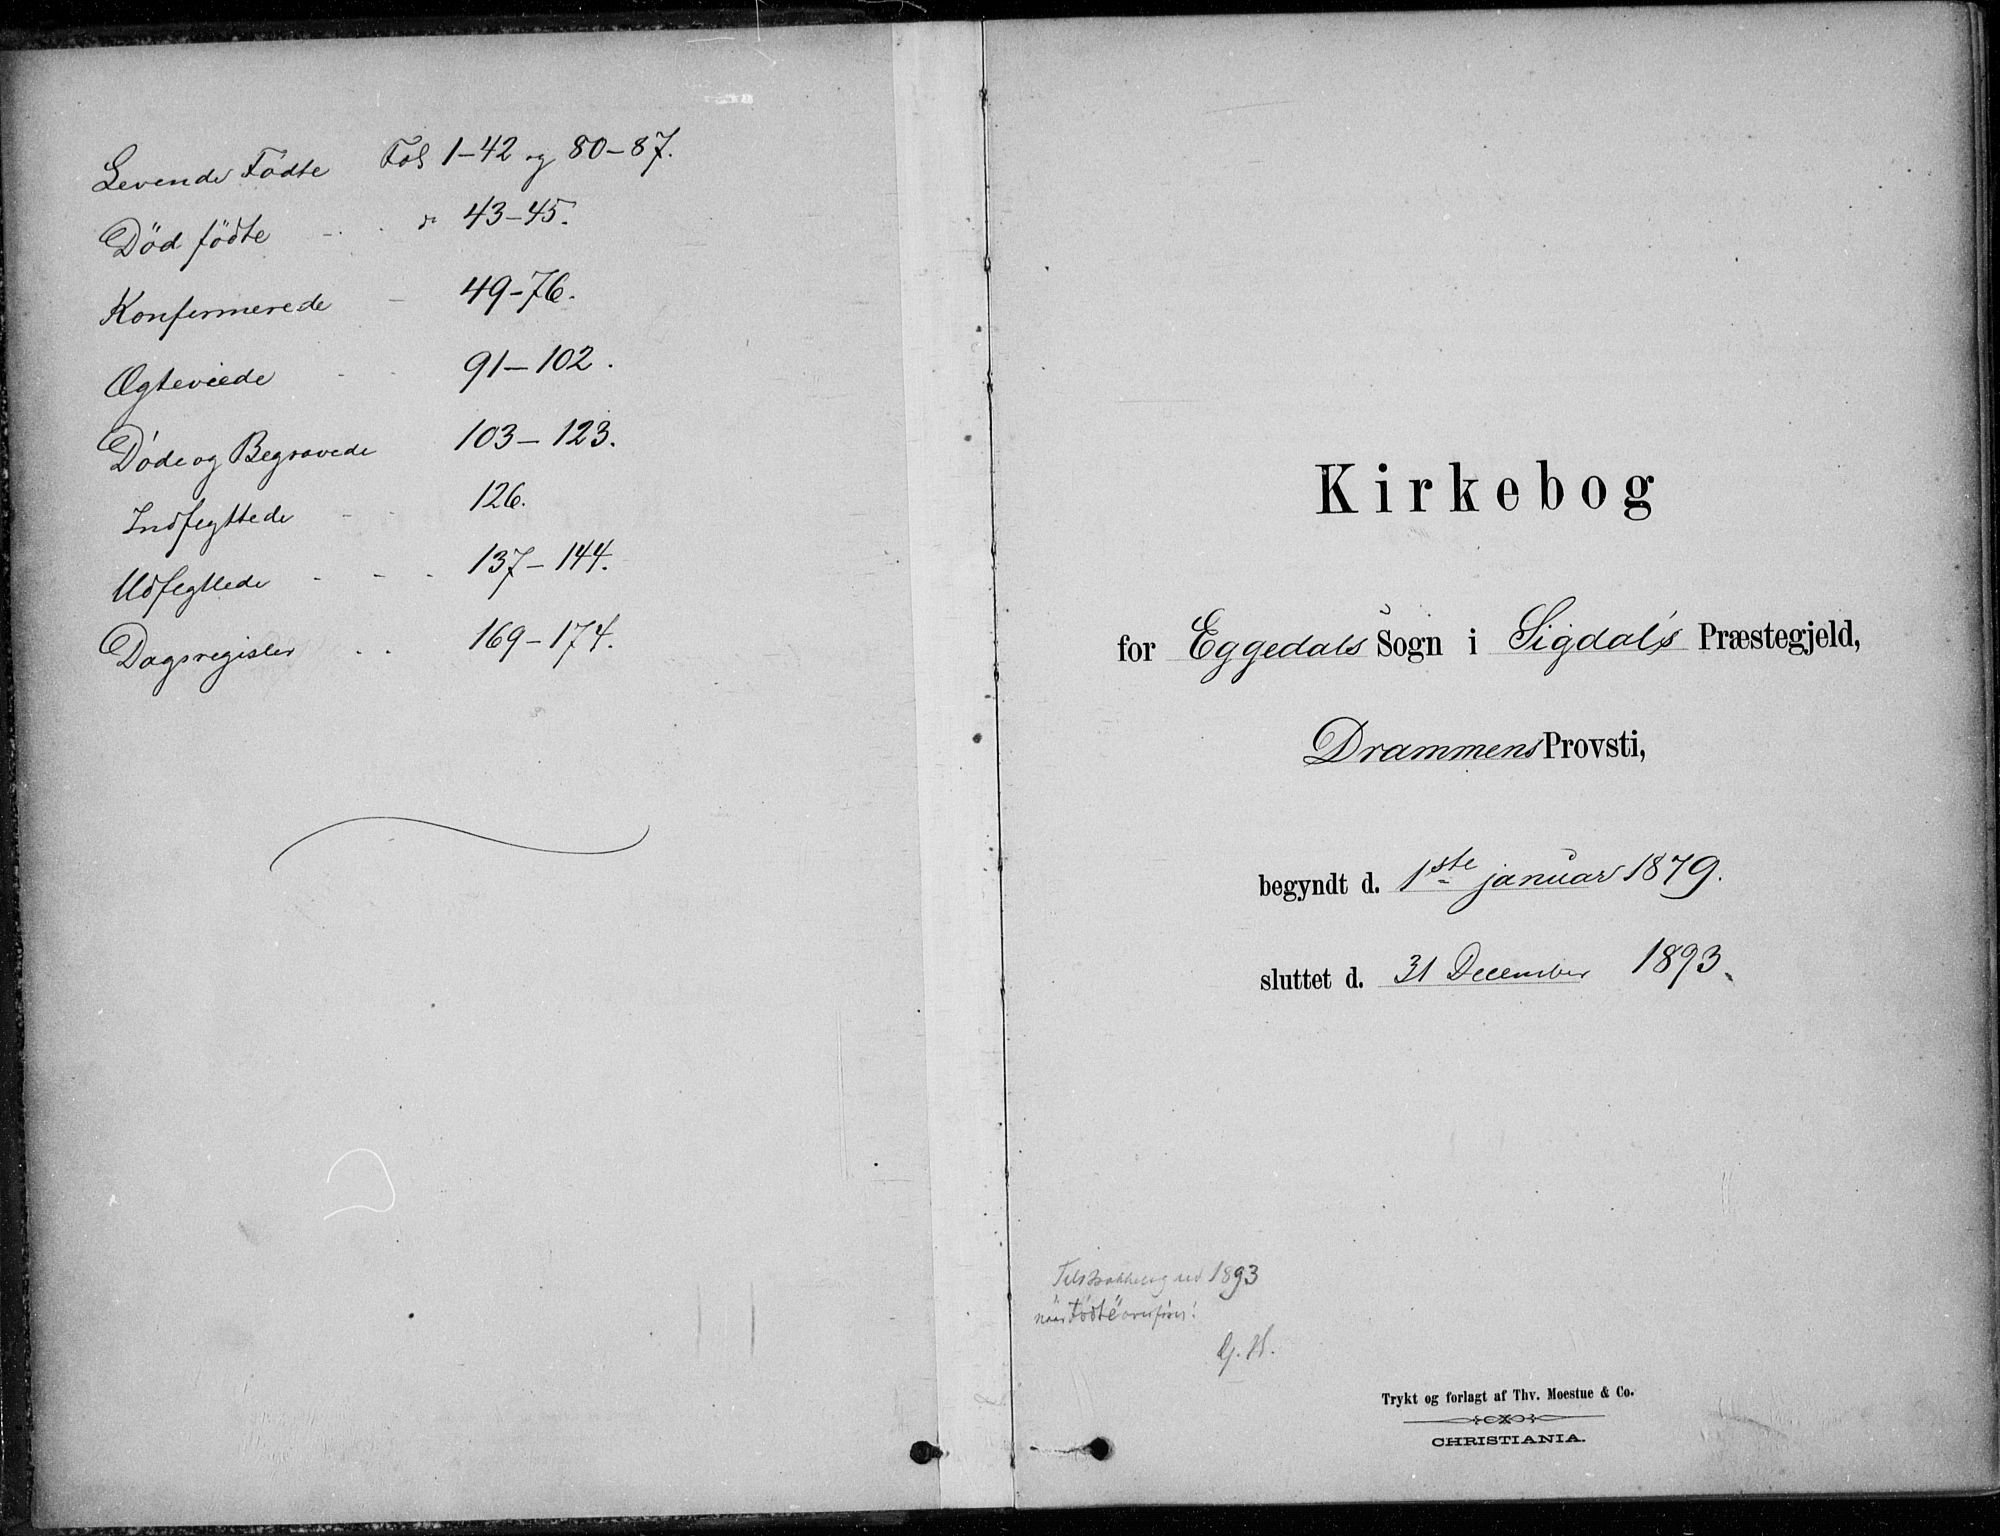 Levende Fødte Fol 1-42 og 80-87.
Død fødte - . . " 43-45.
Konfirmerede - 49-76.
Ægteviede - - 91-102.
Døde og Begravede 103-123.
Indflyttede - - 126.
Udflyttede - - . 137-144.
Dagsregister . . 169-174.
Kirkebog
for Eggedals Sogn i Sigdal's Præstegjeld,
Drammens Provsti,
begyndt d. 1ste januar 1879.
sluttet d. 31 December 1893.
1893
naar "Fødte" overføres!
G. H.
Trykt og forlagt af Thv. Moestue & Co.
CHRISTIANIA.